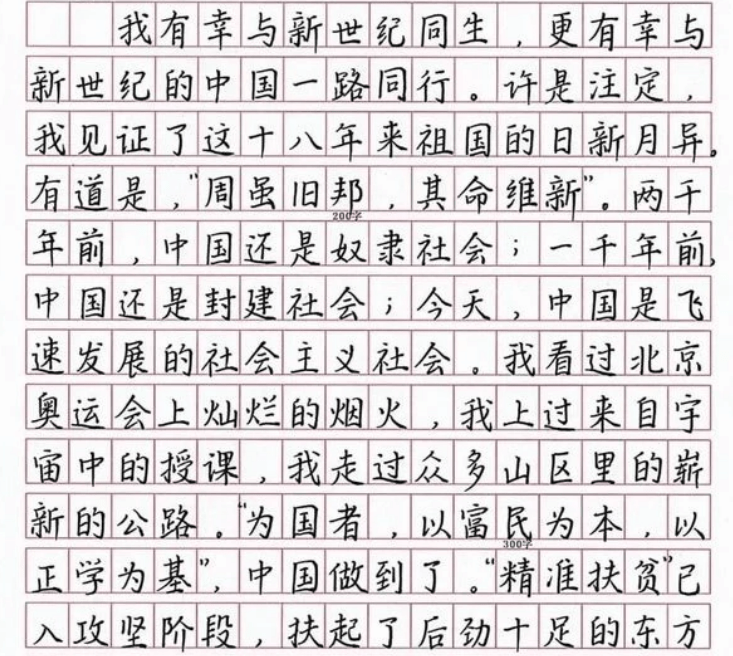 我有幸与新世纪同生，更有幸与
新世纪的中国一路同行。许是注定，
我见证了这十八年来祖国的日新月异。
有道是，“周虽旧邦，其命维新”。两千
200字
年前，中国还是奴隶社会；一千年前，
中国还是封建社会；今天，中国是飞
速发展的社会主义社会。我看过北京
奥运会上灿烂的烟火，我上过来自宇
宙中的授课，我走过众多山区里的崭
新的公路。“为国者，以富民为本，以
300字
正学为基”，中国做到了。“精准扶贫”已
入攻坚阶段，扶起了后劲十足的东方